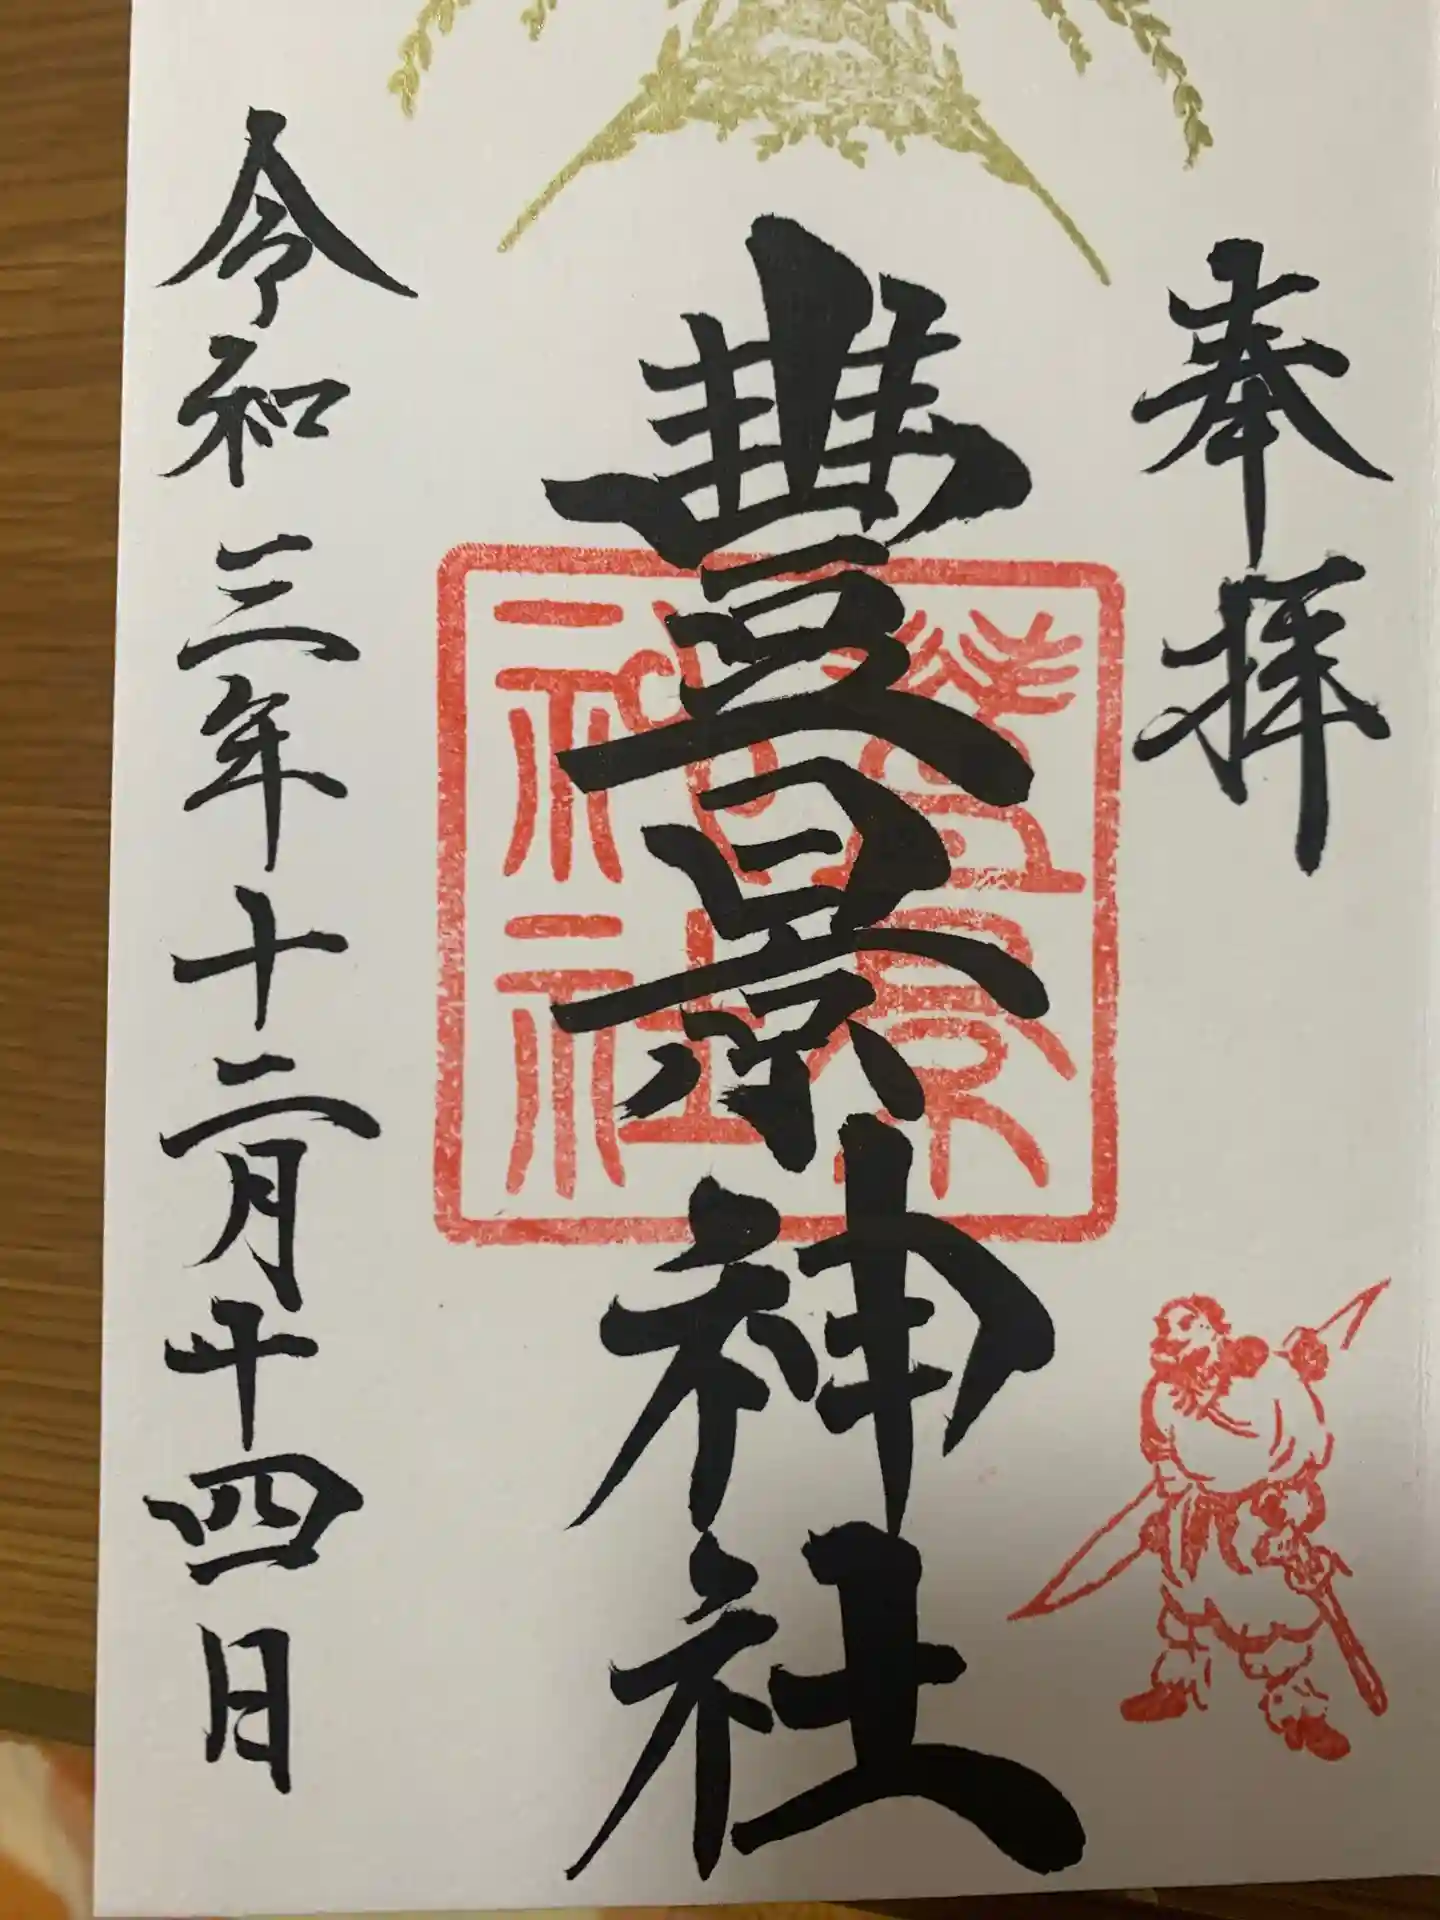 奉拝
豊景神社
豊景神社
令和三年十二月十四日